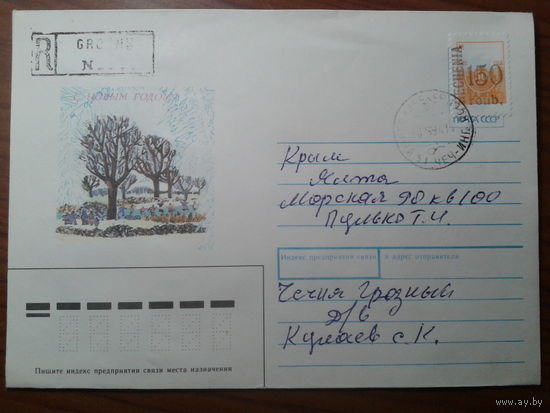 R GROZNY
N
С НОВЫМ ГОДОМ!
150
roub.
ПОЧТА СССР
Крым
Ялта
Морская 98 кв 100
Пулько Т.И.
Индекс предприятия связи и адрес отправителя
Чечня Грозный
Д/В
Кулаев С.К.
Пишите индекс предприятия связи места назначения
www.ay.by